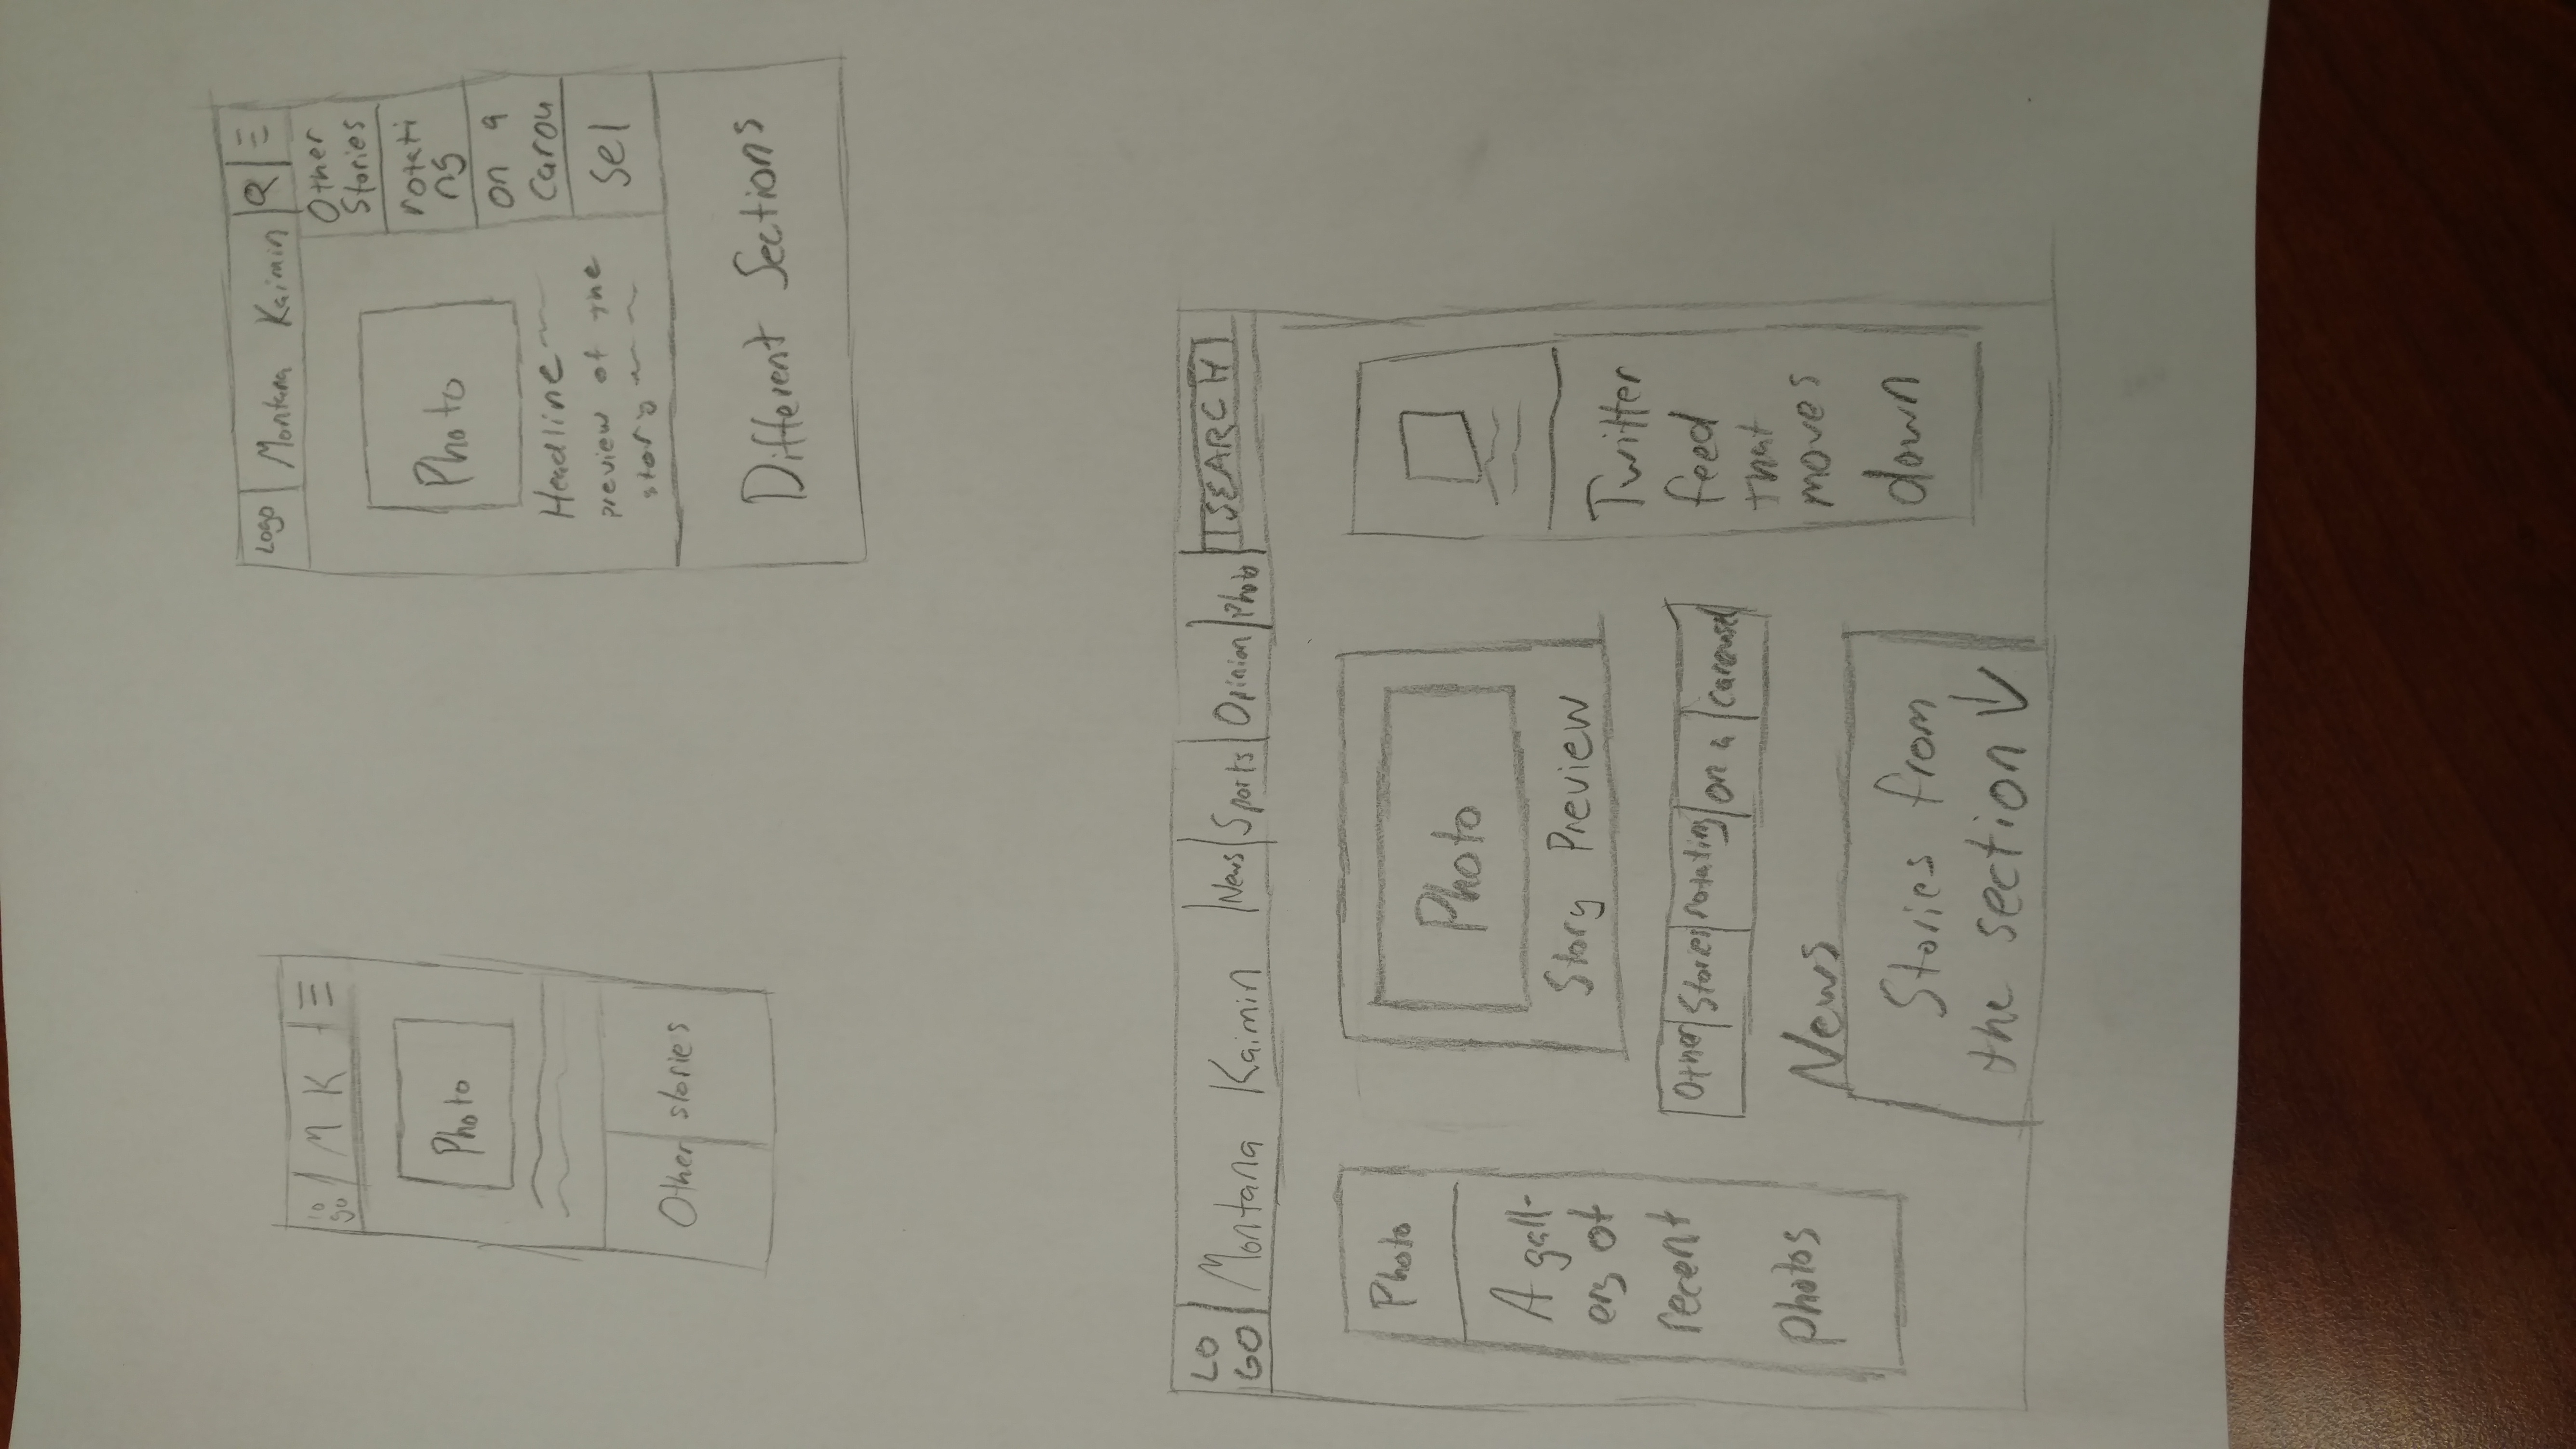 logo M K
Photo
Other stories
Logo Montana Kaimin
Photo
Headline
preview of the
story
Other
Stories
rotati
ng
on a
Carou
sel
Different Sections
LO
GO
Montana Kaimin News Sports Opinion Photo SEARCH
Photo
A gall-
ery of
recent
photos
Photo
Story Preview
Other Stories rotating on a carousel
News
Stories from
the section
Twitter
feed
that
moves
down